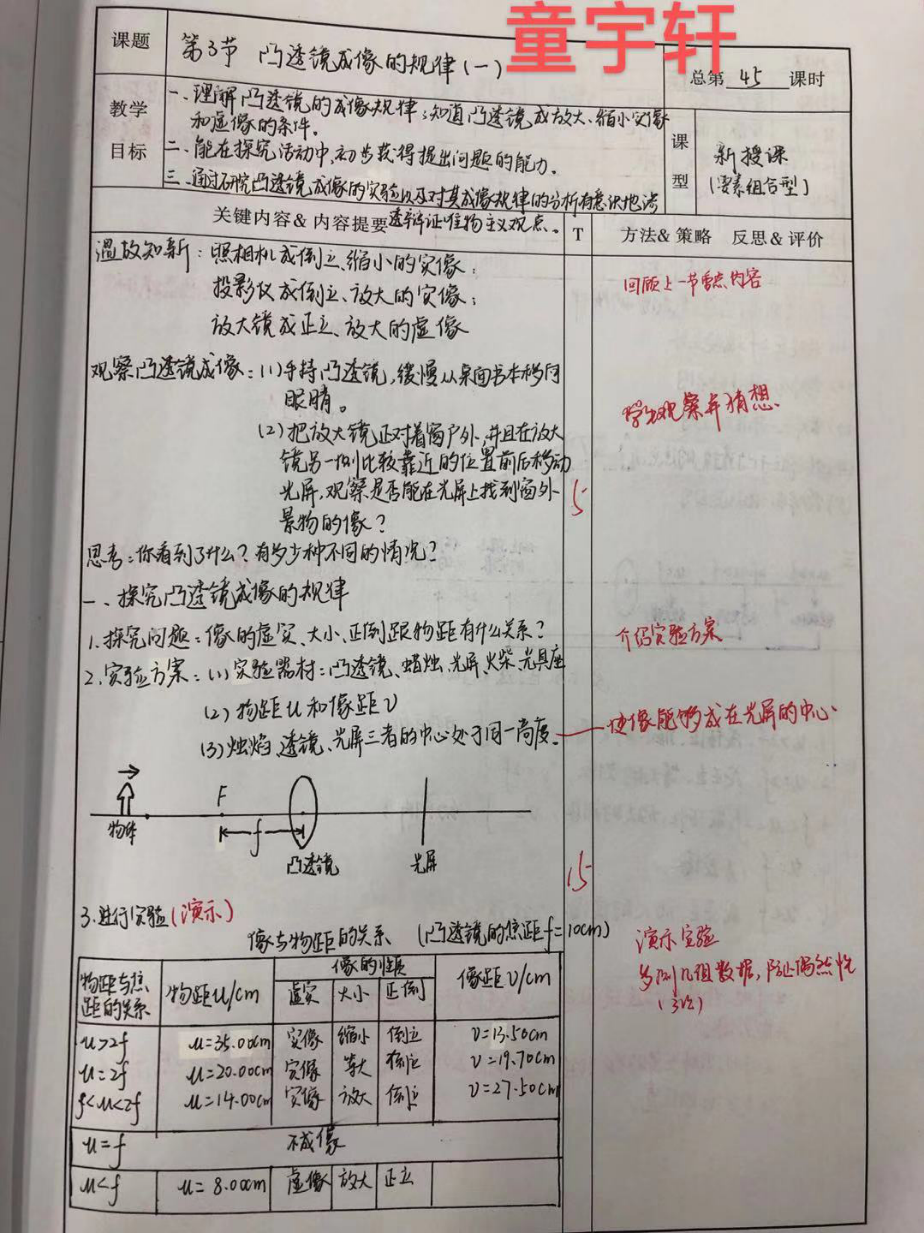 童宇轩
课题
第3节 凸透镜成像的规律(一)
总第 45 课时
教学
目标
一、理解凸透镜的成像规律;知道凸透镜成放大、缩小实像
和虚像的条件。
二、能在探究活动中,初步获得提出问题的能力。
三、通过研究凸透镜成像的实验以及对其成像规律的分析有意识地渗
透辩证唯物主义观点。
课
型
新授课
(要素组合型)
关键内容& 内容提要
T
方法& 策略 反思& 评价
温故知新:照相机成倒立、缩小的实像;
投影仪成倒立、放大的实像;
放大镜成正立、放大的虚像
回顾上一节重点内容
观察凸透镜成像:(1)手持凸透镜,缓慢从桌面书本移向
眼睛。
学生观察并猜想
(2)把放大镜正对着窗户外,并且在放大
镜另一侧比较靠近的位置前后移动
光屏,观察是否能在光屏上找到窗外
景物的像?
5
思考:你看到了什么?有多少种不同的情况?
一、探究凸透镜成像的规律
1.探究问题:像的虚实、大小、正倒跟物距有什么关系?
介绍实验方案
2.实验方案:(1)实验器材:凸透镜、蜡烛、光屏、火柴、光具座
(2)物距u和像距v
(3)烛焰、透镜、光屏三者的中心处于同一高度。
使像能够成在光屏的中心
F
f
物体
凸透镜
光屏
15
3.进行实验(演示)
像与物距的关系 (凸透镜的焦距f=10cm)
演示实验
多测几组数据,防止偶然性
(3次)
物距与焦
距的关系
物距u/cm
像的性质
虚实 大小 正倒
像距v/cm
u>2f u=35.00cm 实像 缩小 倒立 v=13.50cm
u=2f u=20.00cm 实像 等大 倒立 v=19.70cm
f<u<2f u=14.00cm 实像 放大 倒立 v=27.50cm
u=f 不成像
u<f u=8.00cm 虚像 放大 正立